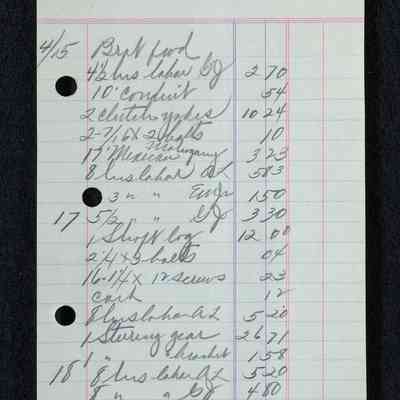 4/15 Brat food
4½ hrs labor GJ 2 70
10' conduit 54
2 clutch yokes 10 24
2-7/16 x 2 bolts 10
17' Mexican Mahogany 3 23
8 hrs labor AL 5 83
3 " " EWJr 1 50
17 5½ " " GJ 3 30
1 Shaft log 12 00
2 1/4 x 3 bolts 04
16-1/4 x 12 screws 23
cork 12
8 hrs labor AL 5 20
1 Steering gear 26 71
1 " " bracket 1 58
18 8 hrs labor AL 5 20
8 " " GJ 4 80